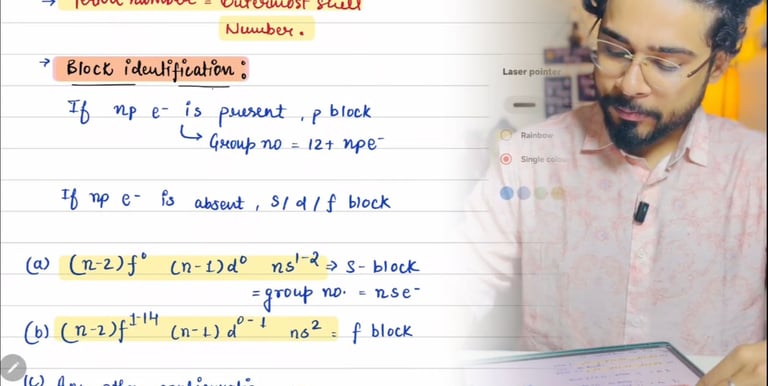 → Period number = Outermost shell
Number.
→ Block identification :
If np e- is present, p block
↳ Group no = 12+ npe-
If np e- is absent, s/d/f block
(a) (n-2)f⁰ (n-1)d⁰ ns¹⁻² ⇒ s-block
= group no. = nse-
(b) (n-2)f¹⁻¹⁴ (n-1)d⁰⁻¹ ns² = f block
(c) Any other
Laser pointer
Rainbow
Single colou